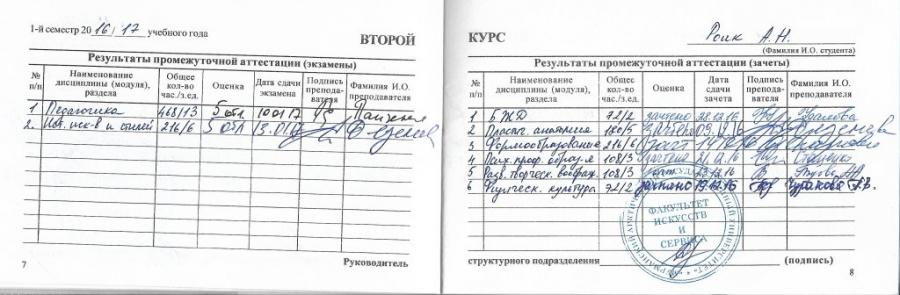 1-й семестр 2016/17 учебного года
ВТОРОЙ
Результаты промежуточной аттестации (экзамены)
№ п/п Наименование дисциплины (модуля), раздела Общее кол-во час./з.ед. Оценка Дата сдачи экзамена Подпись препода-вателя Фамилия И.О. преподавателя
1 Педагогика 468/13 5 отл 10.01.17
2. Ист. иск-в и стилей 216/6 5 отл 13.01.17
7 Руководитель
КУРС Роик А.Н.
(Фамилия И.О. студента)
Результаты промежуточной аттестации (зачеты)
№ п/п Наименование дисциплины (модуля), раздела Общее кол-во час./з.ед. Оценка Дата сдачи зачета Подпись препода-вателя Фамилия И.О. преподавателя
1 БЖД 72/2 зачтено 28.12.16
2 анатомия 180/5 зачтено
3 Формообразование 216/6
4 Псих. проф. образ-я 108/3 зачтено 21.12.16
5 Разв. творческ. воображ. 108/3 23.12.16
6 Физическ. культура 72/2 зачтено 19.12.16 Чуракова Е.В.
ФАКУЛЬТЕТ
ИСКУССТВ
И
СЕРВИСА
структурного подразделения (подпись)
8